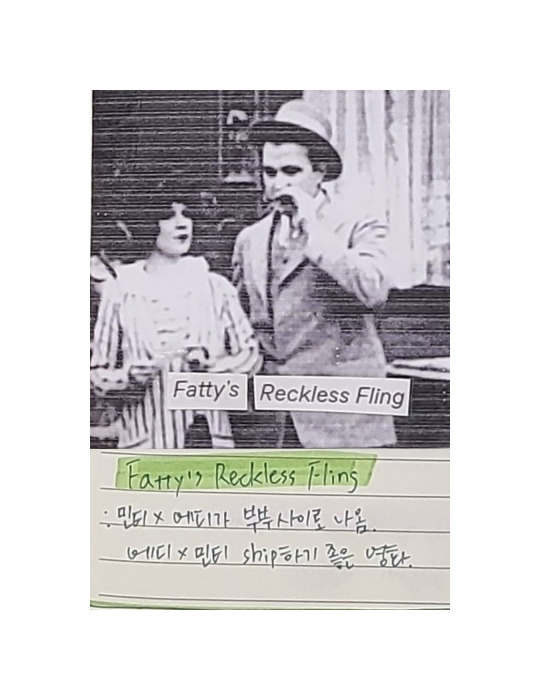 Fatty's Reckless Fling
Fatty's Reckless Fling
: 민티 × 에디가 부부사이로 나옴.
에디 × 민티 ship하기 좋은 영화.